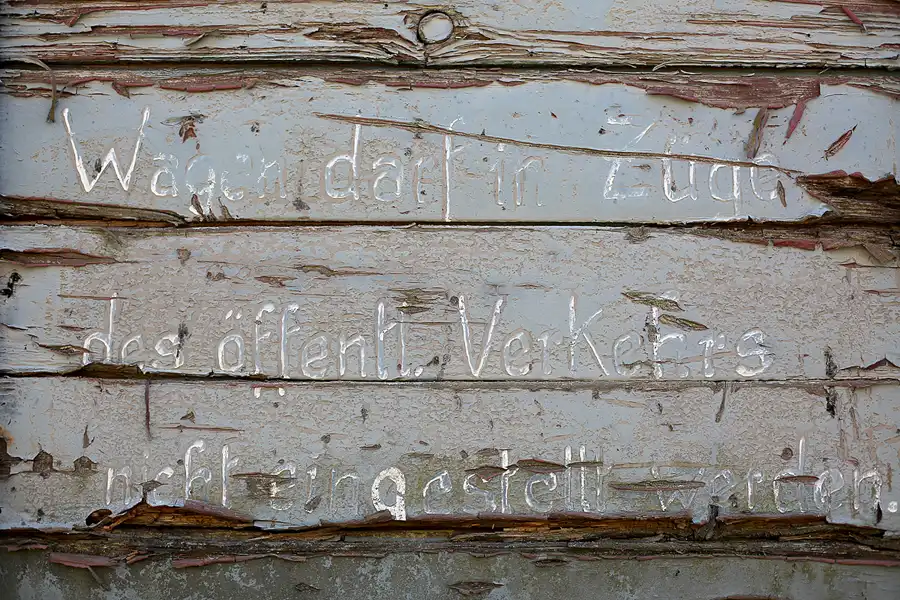 Wagen darf in Züge
des öffentl. Verkehrs
nicht eingestellt werden.